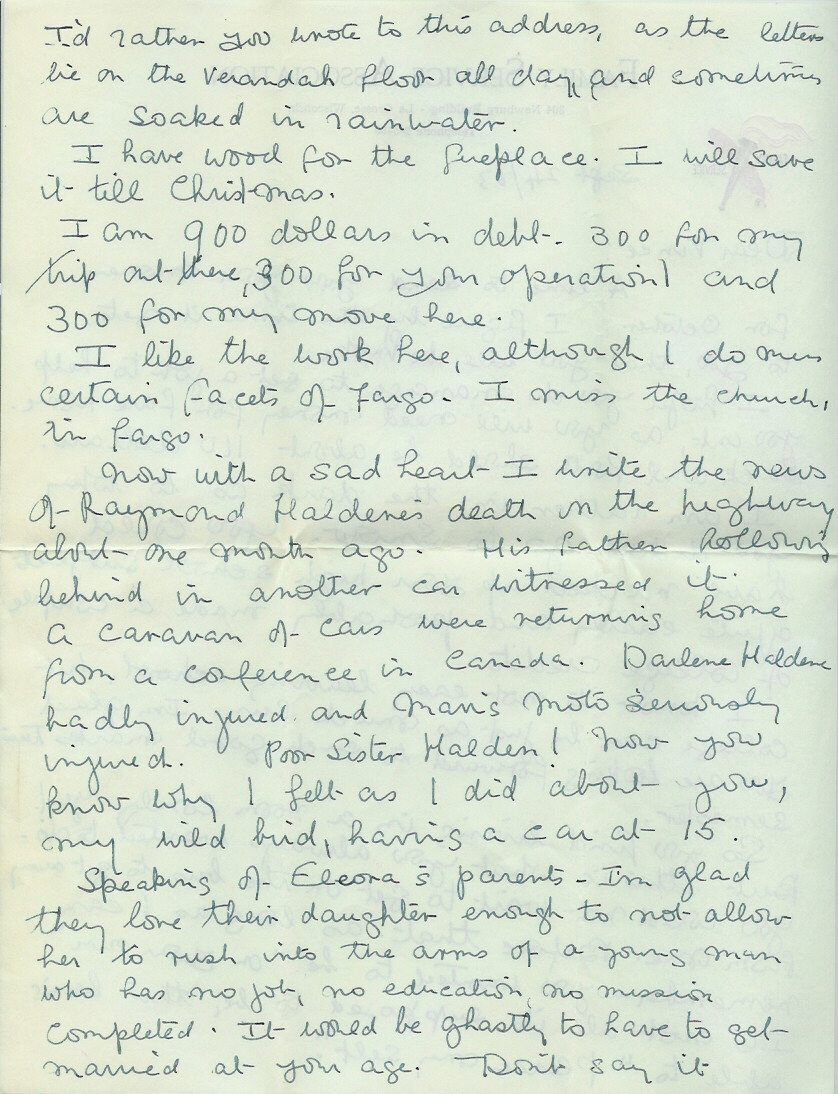 I'd rather you wrote to this address, as the letters
lie on the verandah floor all day, and sometimes
are soaked in rainwater.
I have wood for the fireplace. I will save
it till Christmas.
I am 900 dollars in debt. 300 for my
trip out there, 300 for your operation and
300 for my move here.
I like the work here, although I do miss
certain facets of Fargo. I miss the church,
in Fargo.
Now with a sad heart I write the news
of Raymond Haldene's death on the highway
about one month ago. His father following
behind in another car witnessed it.
A caravan of cars were returning home
from a conference in Canada. Darlene Haldene
badly injured and Mavis Moto seriously
injured. Poor Sister Halden! Now you
know why I felt as I did about you,
my wild bird, having a car at 15.
Speaking of Eleora's parents - I'm glad
they love their daughter enough to not allow
her to rush into the arms of a young man
who has no job, no education, no mission
completed. It would be ghastly to have to get
married at your age. Don't say it